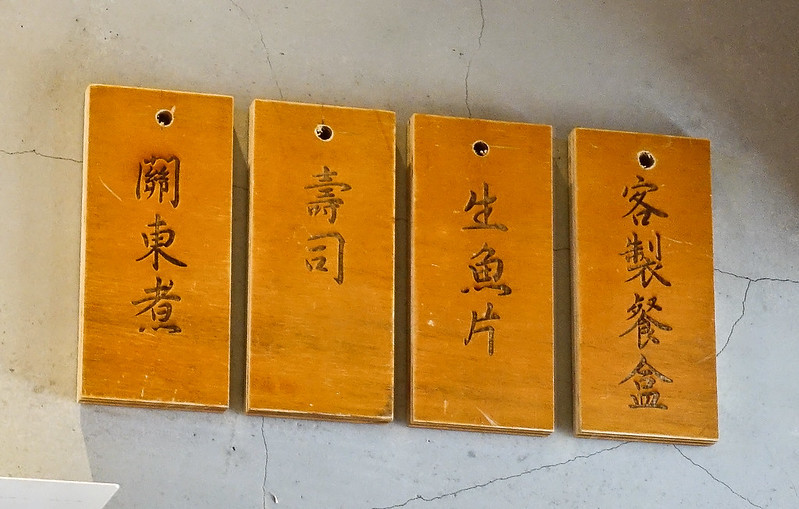 關東煮
壽司
生魚片
客製餐盒